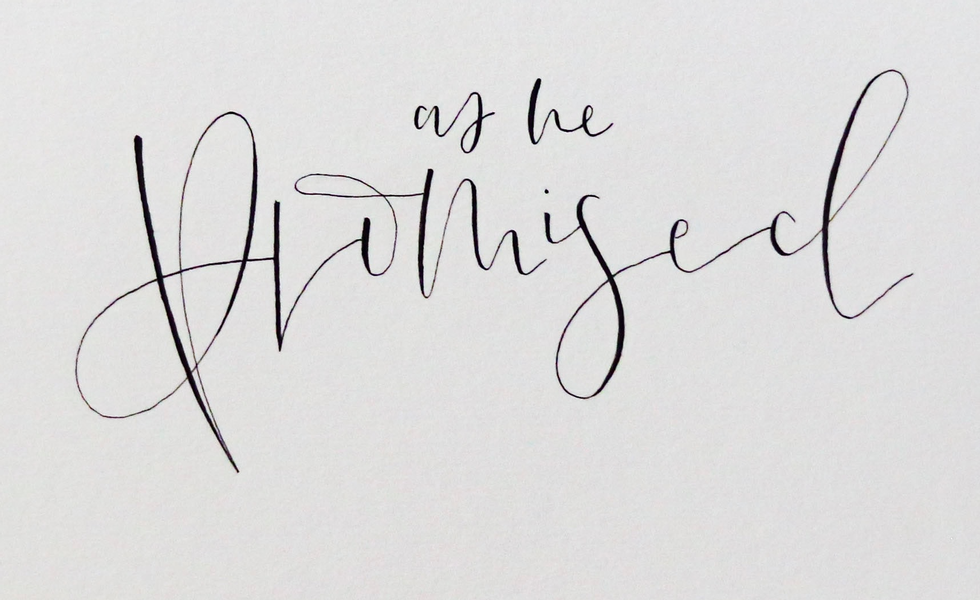 as he
promised